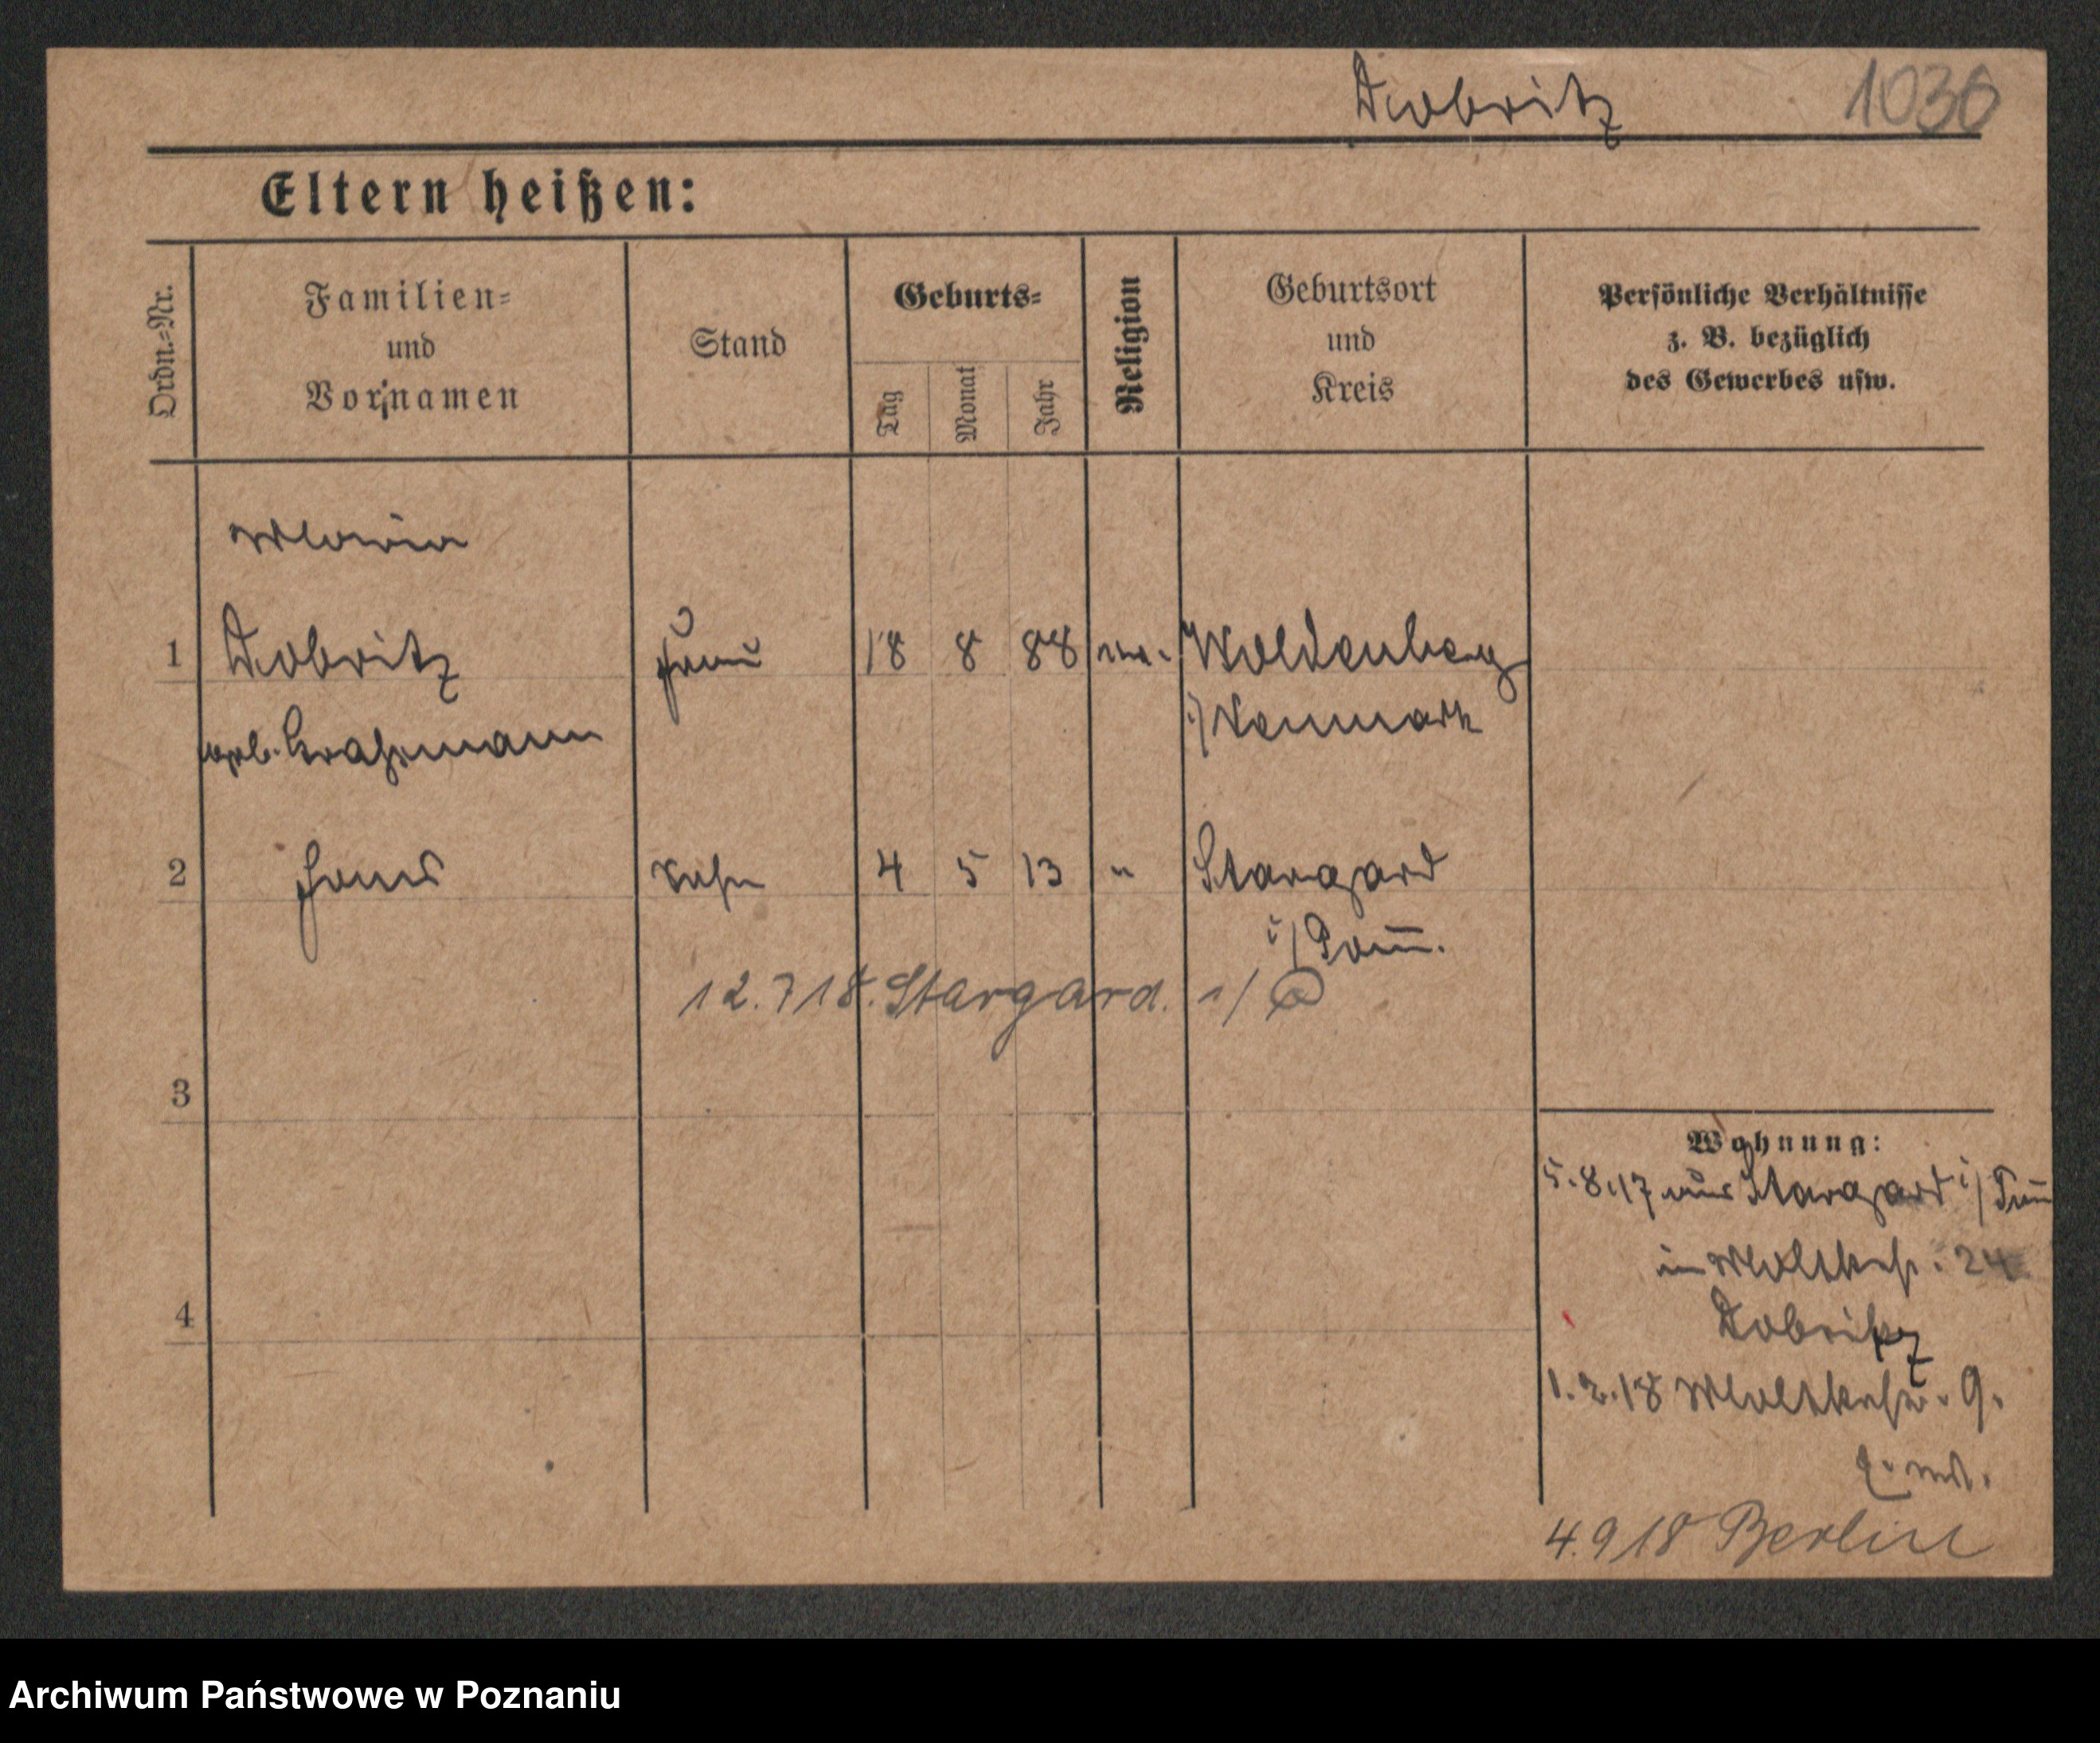 Dobritz 1036
Eltern heißen:
Ordn.=Nr.
Familien=
und
Vornamen
Stand
Geburts=
Tag
Monat
Jahr
Religion
Geburtsort
und
Kreis
Persönliche Verhältnisse
z. B. bezüglich
des Gewerbes usw.
Maria
1 Dobritz Frau 18 8 88 Woldenberg
geb. Grahsmann i/Neumark
2 Hans Sohn 4 5 13 " Stargard
i/Pom̅.
12.7 18. Stargard. i/
3
4
Wohnung:
5.8.17 aus Stargard i/
in Moltkestr. 24
Dobritz
1.2.18 Moltkestr. 9.
4.9 18 Berlin
Archiwum Państwowe w Poznaniu